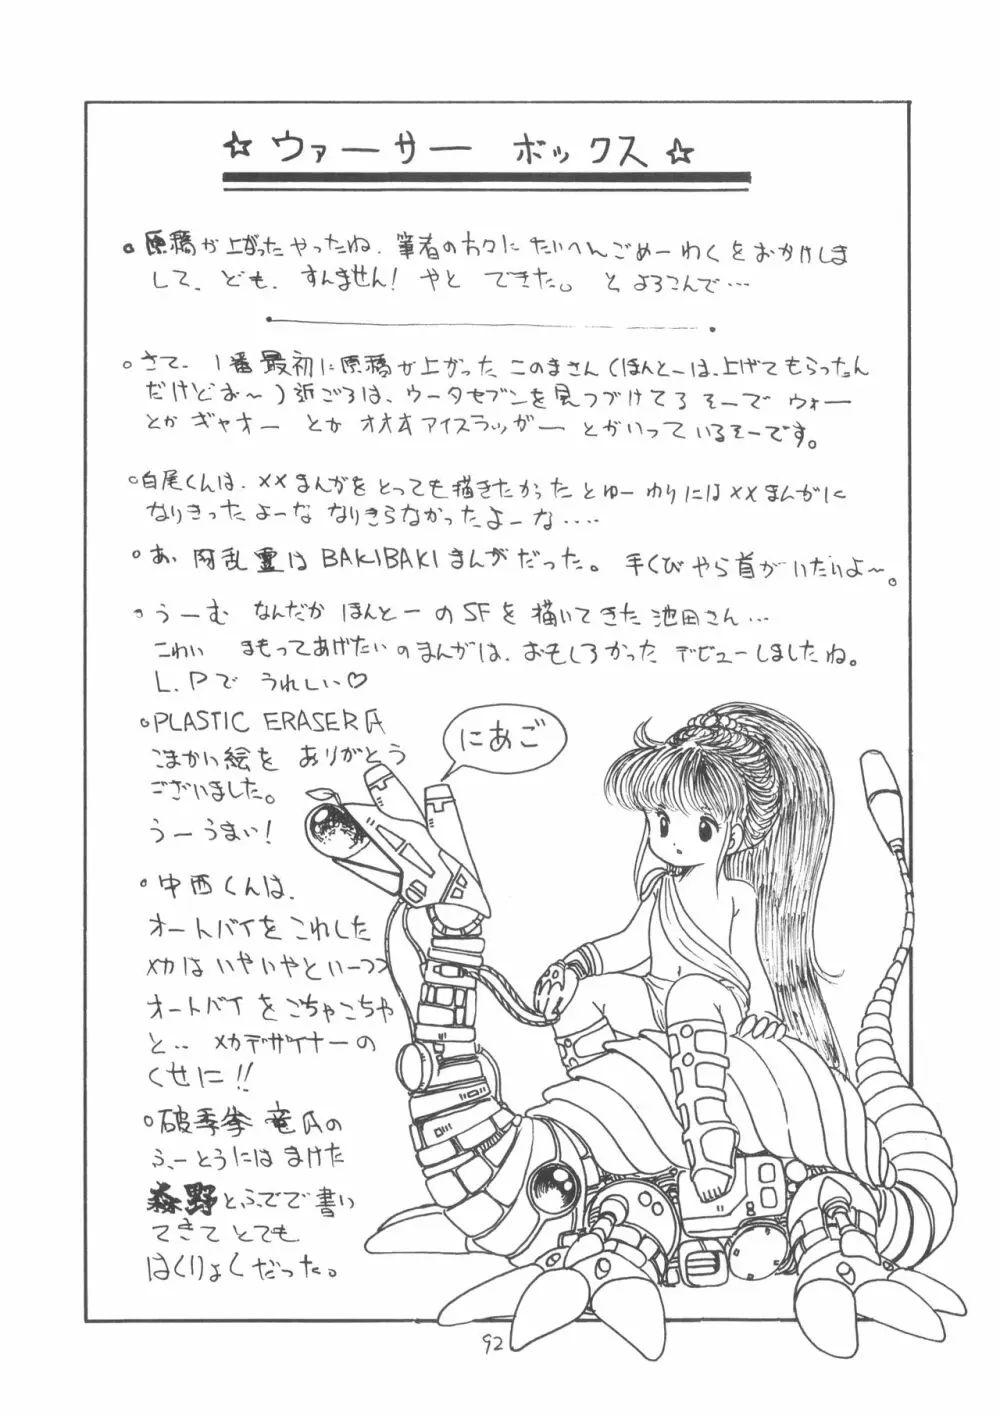 ☆ ウァーサー ボックス ☆
。原稿が上がった やったね、筆者の方々に たいへんごめーわくをおかけしま
して、ども、すんません! やと できた。 と よろこんで…
。さて、1番最初に原稿が上がった このまさん(ほんとーは、上げてもらったん
だけどお〜)近ごろは、ウータセブンを見つづけてる そーで ウォー
とか ギャオー とか オオオ アイスラッガー とかいっているそーです。
。白尾くんは、××まんがを とっても描きたかった とゆー わりには ××まんがに
なりきったよーな なりきらなかったよーな‥‥
。あ、阿乱霊は BAKIBAKIまんがだった。 手くびやら首がいたいよ〜。
。うーむ なんだか ほんとーのSFを 描いてきた 池田さん…
こわい まもってあげたいのまんがは、おもしろかった デビューしましたね。
L.Pで うれしい♡
。PLASTIC ERASER氏
こまかい絵を ありがとう
ございました。
うーうまい!
にあご
。中西くんは、
オートバイを こわした
メカは いやいやといーつつ
オートバイを ごちゃごちゃ
と‥ メカデザイナーの
くせに!!
。破季拳 竜氏の
ふーとうには まけた
森野とふでで書い
てきて とても
はくりょくだった。
92